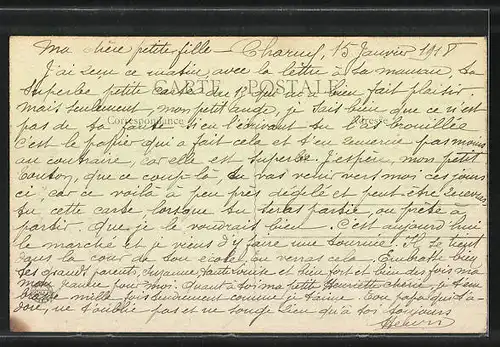 Ma chère petite fille — Charny, 15 Janvier 1918
J'ai reçu ce matin, avec la lettre à ta maman, ta
superbe petite carte du 12 qui m'a bien fait plaisir.
CARTE POSTALE
mais seulement, mon petit ange, je sais bien que ce n'est
Correspondance Adresse
pas de ta faute si en l'écrivant tu l'as brouillée
C'est le papier qui a fait cela et j'en remercie pas moins
au contraire, car elle est superbe. J'espère, mon petit
bouton, que ce coup-là, tu vas venir vers moi ces jours
ci car ce voilà à peu près dégelé et peut-être recevras
tu cette carte lorsque tu seras partie ou prête à
partir que je le voudrais bien. C'est aujourd'hui
le marché et je viens d'y faire une tournée. Il se tient
dans la cour de ton école, tu verras cela. Embrasse bien
tes grands parents, Suzanne, tante Louise et bien fort et bien des fois ma
maman pour moi. Quant à toi ma petite Henriette chérie, je t'em
brasse mille fois tendrement comme je t'aime. Ton papa qui t'a-
dore, ne t'oublie pas et ne songe rien qu'à toi toujours
Henri